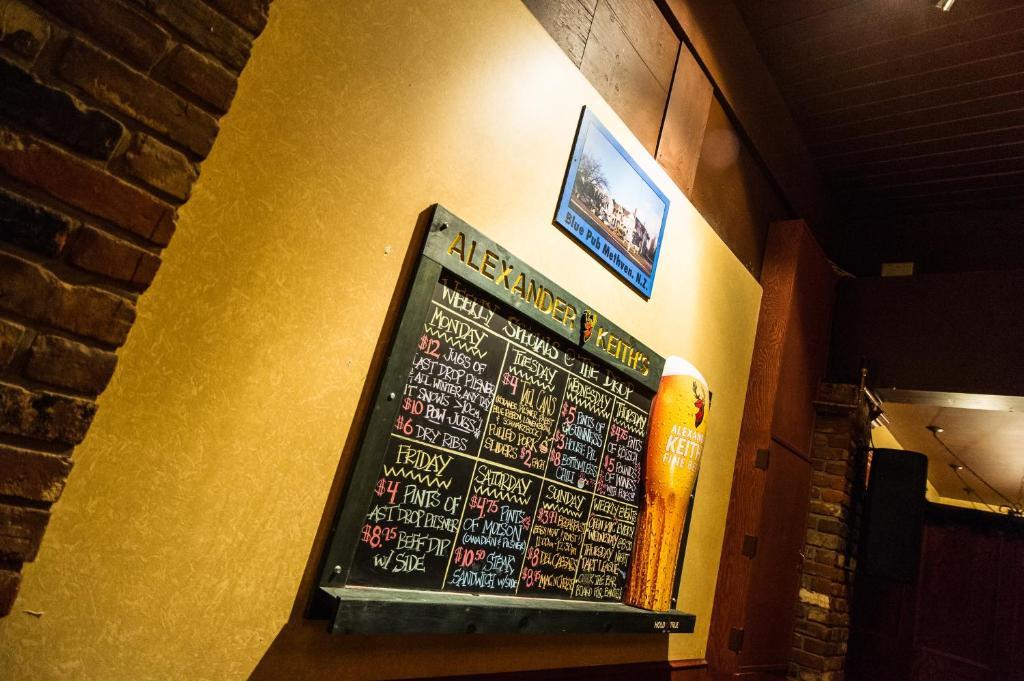 Blue Pub Methven, N.Z.
ALEXANDER KEITH'S
WEEKLY SPECIALS @ THE DROP
MONDAY
$12 JUGS OF
LAST DROP PILSNER
ALL WINTER ANY DAY
IT SNOWS 30CM,
$10 POW JUGS!
$6 DRY RIBS
TUESDAY
$4 TALL CANS
PULLED PORK
SLIDERS $2 EACH
WEDNESDAY
$5 PINTS OF
GUINNESS
$8 BOTTOMLESS
CHILI
THURSDAY
$4.75 PINTS
$5 POUNDS
OF WINGS
FRIDAY
$4 PINTS OF
LAST DROP PILSNER
$8.75 BEEF DIP
W/ SIDE
SATURDAY
$4.75 PINTS
OF MOLSON
CANADIAN & PILSNER
$10.50 STEAK
SANDWICH W/ SIDE
SUNDAY
BREAKFAST
$8 CAESARS
WEEKLY EVENTS
OPEN MIC EVERY
WEDNESDAY
THURSDAY NIGHT
DART LEAGUE
THE BAR
ALEXAN
KEITH
FINE BE